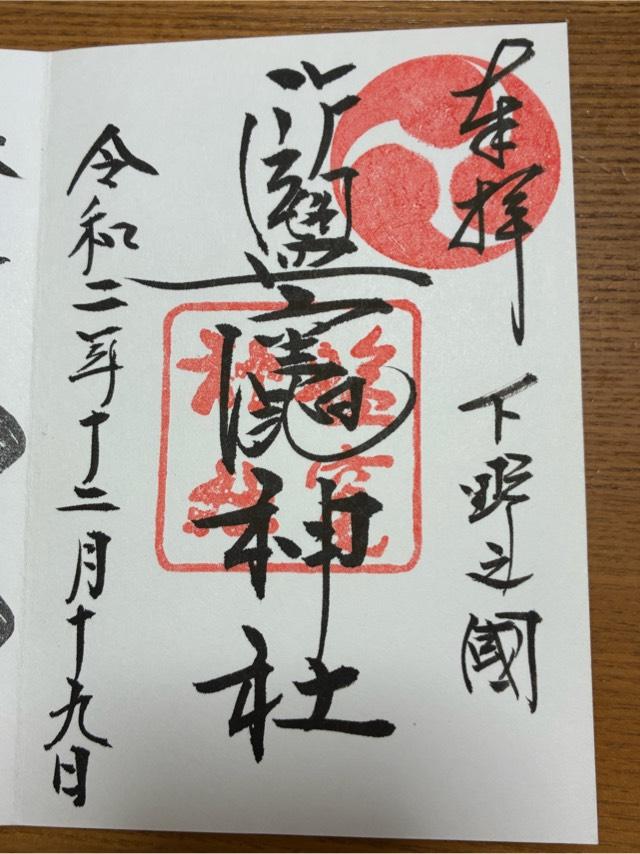 奉拝
下野之國
鹽竈神社
令和二年十二月十九日